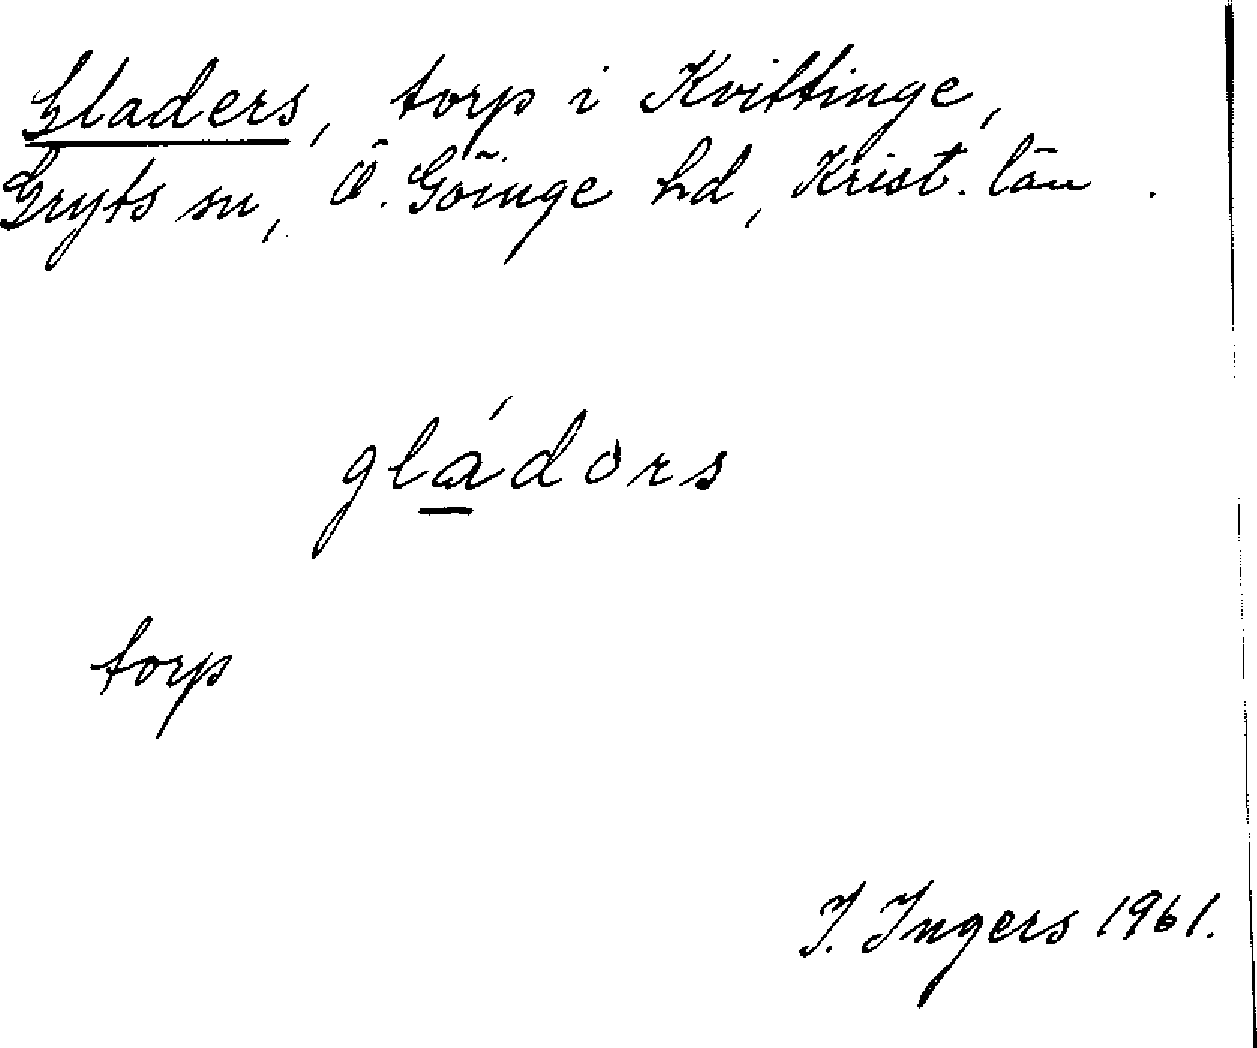 Gladers, torp i Kvittinge,
Gryts sn, Ö. Göinge hd, Krist. län.
gládors
torp
I. Ingers 1961.